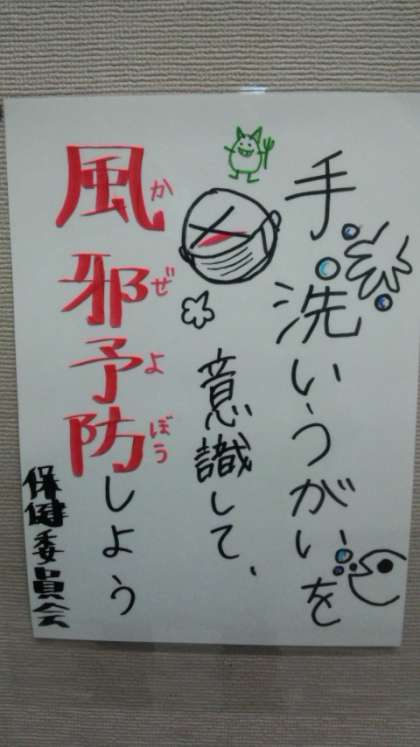 手洗いうがいを
意識して、
風邪予防しよう
かぜよぼう
保健委員会